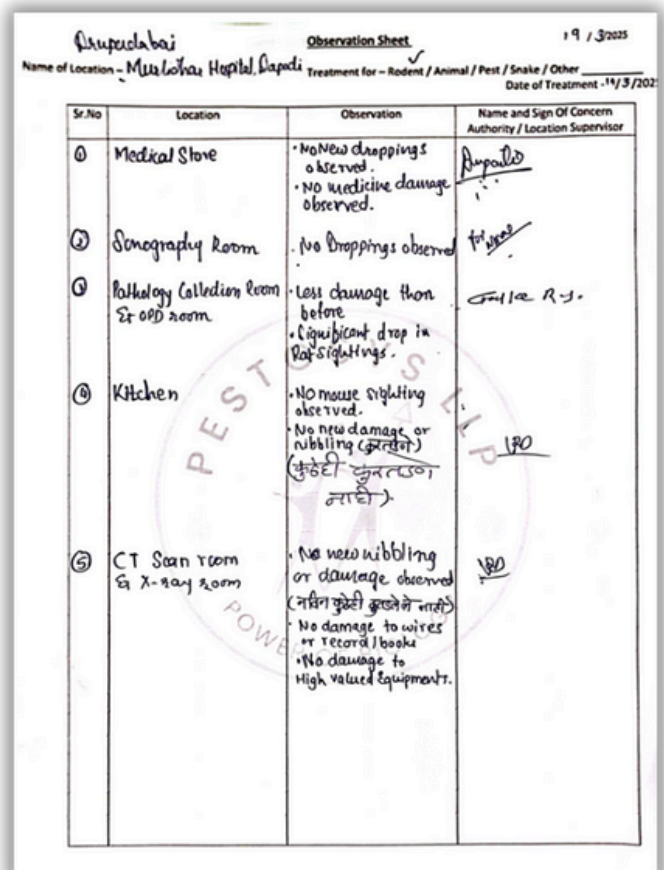 Observation Sheet
19/3/2025
Name of Location - Hospital, Dapodi
Treatment for – Rodent / Animal / Pest / Snake / Other
Date of Treatment -
Sr.No Location Observation Name and Sign Of Concern
Authority / Location Supervisor
① Medical Store
• No New droppings
observed.
• No medicine damage
observed.
② Sonography Room
. No Droppings observed
③ Pathology Collection Room
& OPD room
• Less damage than
before
• Significant drop in
Rat sightings.
④ Kitchen
• No mouse sighting
observed.
• No new damage or
nibbling
(कुठेही कुरतडणे
नाही).
⑤ CT Scan room
& X-ray room
• No new nibbling
or damage observed
(नविन कुठेही नाही)
• No damage to wires
or record/books
• No damage to
High valued Equipments.
PESTOSYS LLP
POWER